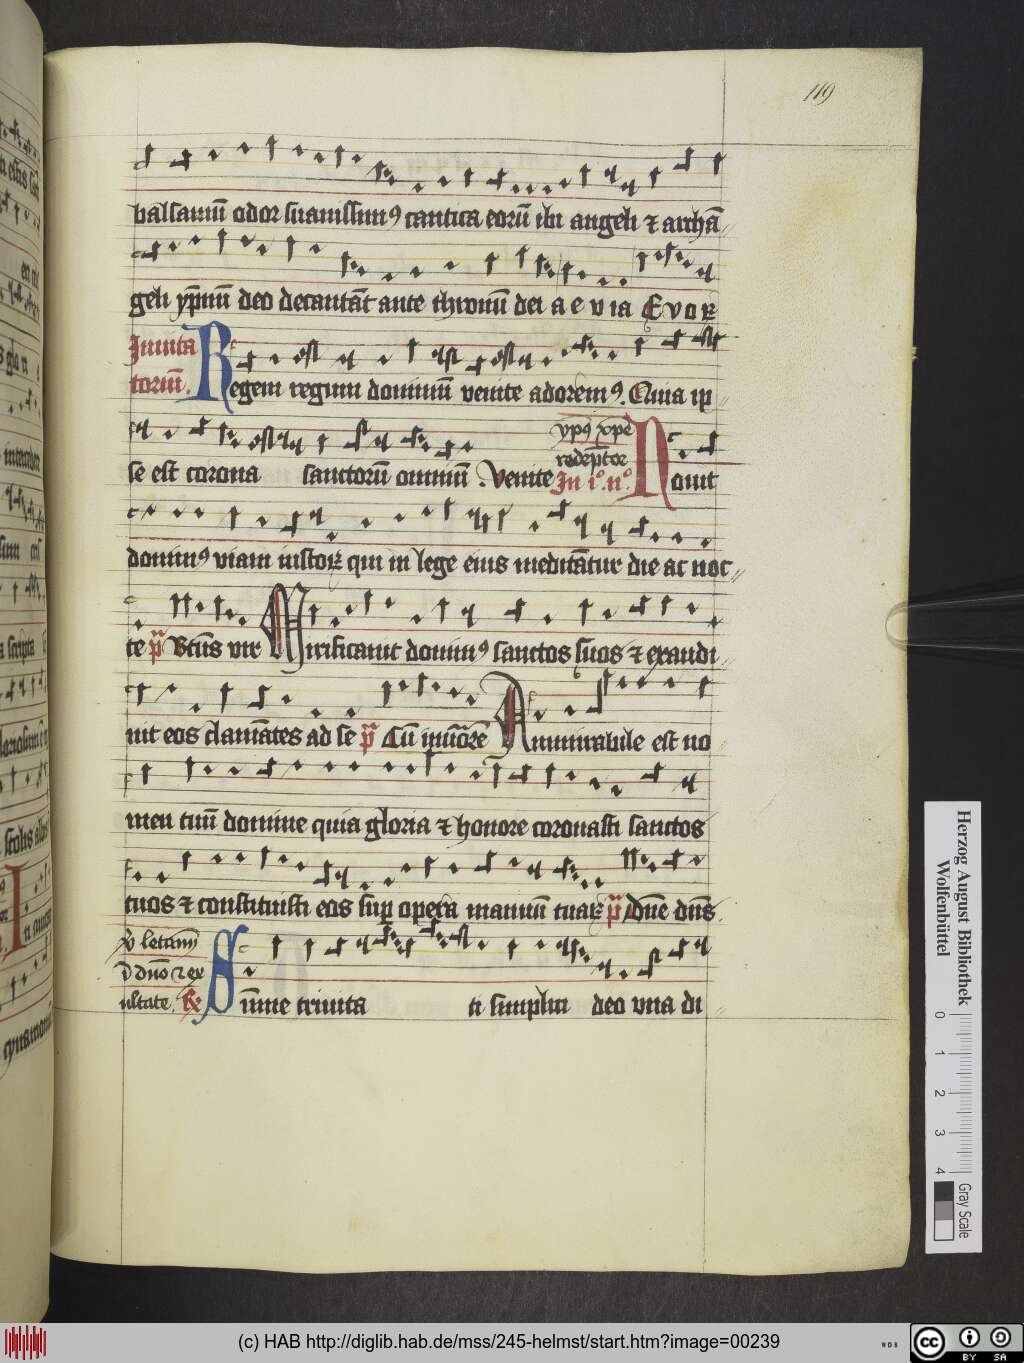 119
balsamū odor suauissimꝰ cantica eorū ibi angeli ⁊ archā
geli ypnū deo decantāt ante thronū dei a e v ia E v o ꝝ
Inuita
toriū. Regem regum dominū venite adoremꝰ. Quia ip
se est corona sanctorū omniū. Venite
ypꝰ xpe
redēptor
In iº nº. Nouit
dominꝰ viam iustoꝝ qui in lege eius meditātur die ac noc
te p̄ Btūs vir Mirificauit dominꝰ sanctos suos ⁊ exaudi
uit eos clamātes ad se p̄ Cū inuocarē Ammirabile est no
men tuū domine quia gloria ⁊ honore coronasti sanctos
tuos ⁊ constituisti eos sup opera manuū tuaꝝ p̄ Dn̄e dn̄s
V̄ letamī
ī dn̄o ⁊ ex
ultate. R̄ Sūme trinita ti simplici deo vna di
Herzog August Bibliothek
Wolfenbüttel
0 1 2 3 4
Gray Scale
(c) HAB http://diglib.hab.de/mss/245-helmst/start.htm?image=00239
WDB
CC BY SA